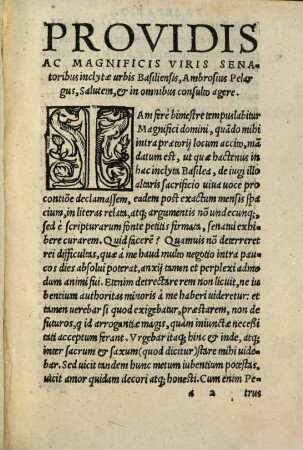 PROVIDIS
AC MAGNIFICIS VIRIS SENA
toribus inclytæ urbis Basiliensis, Ambrosius Pelar
gus, Salutem, & in omnibus consulto agere.
IAm ferè bimestre tempus labitur
Magnifici domini, quãdo mihi
intra prætorij locum accito, mã
datum est, ut quæ hactenus in
hac inclyta Basilea, de iugi illo
altaris sacrificio uiua uoce pro
contiõe declamassem, eadem post exactum mensis spa
cium, in literas relata, atq; argumentis nõ undecunq;,
sed è scripturarum fonte petitis firmata, senatui exhi
bere curarem. Quid facerẽ? Quamuis nõ deterreret
rei difficultas, quæ à me haud multo negotio intra pau
cos dies absolui poterat, anxij tamen et perplexi admo
dum animi fui. Etenim detrectare rem non licuit, ne iu
bentium authoritas minoris à me haberi uideretur: et
tamen uerebar si quod exigebatur, præstarem, non de
futuros, q id arrogantiæ magis, quàm iniunctæ necessi
tati acceptum ferant. Vrgebar itaq; hinc & inde, atq;
inter sacrum & saxum (quod dicitur) stare mihi uide
bar. Sed uicit tandem hunc metum iubentium potestas,
uicit amor quidam decori atq; honesti. Cum enim Pe-
a 2 trus